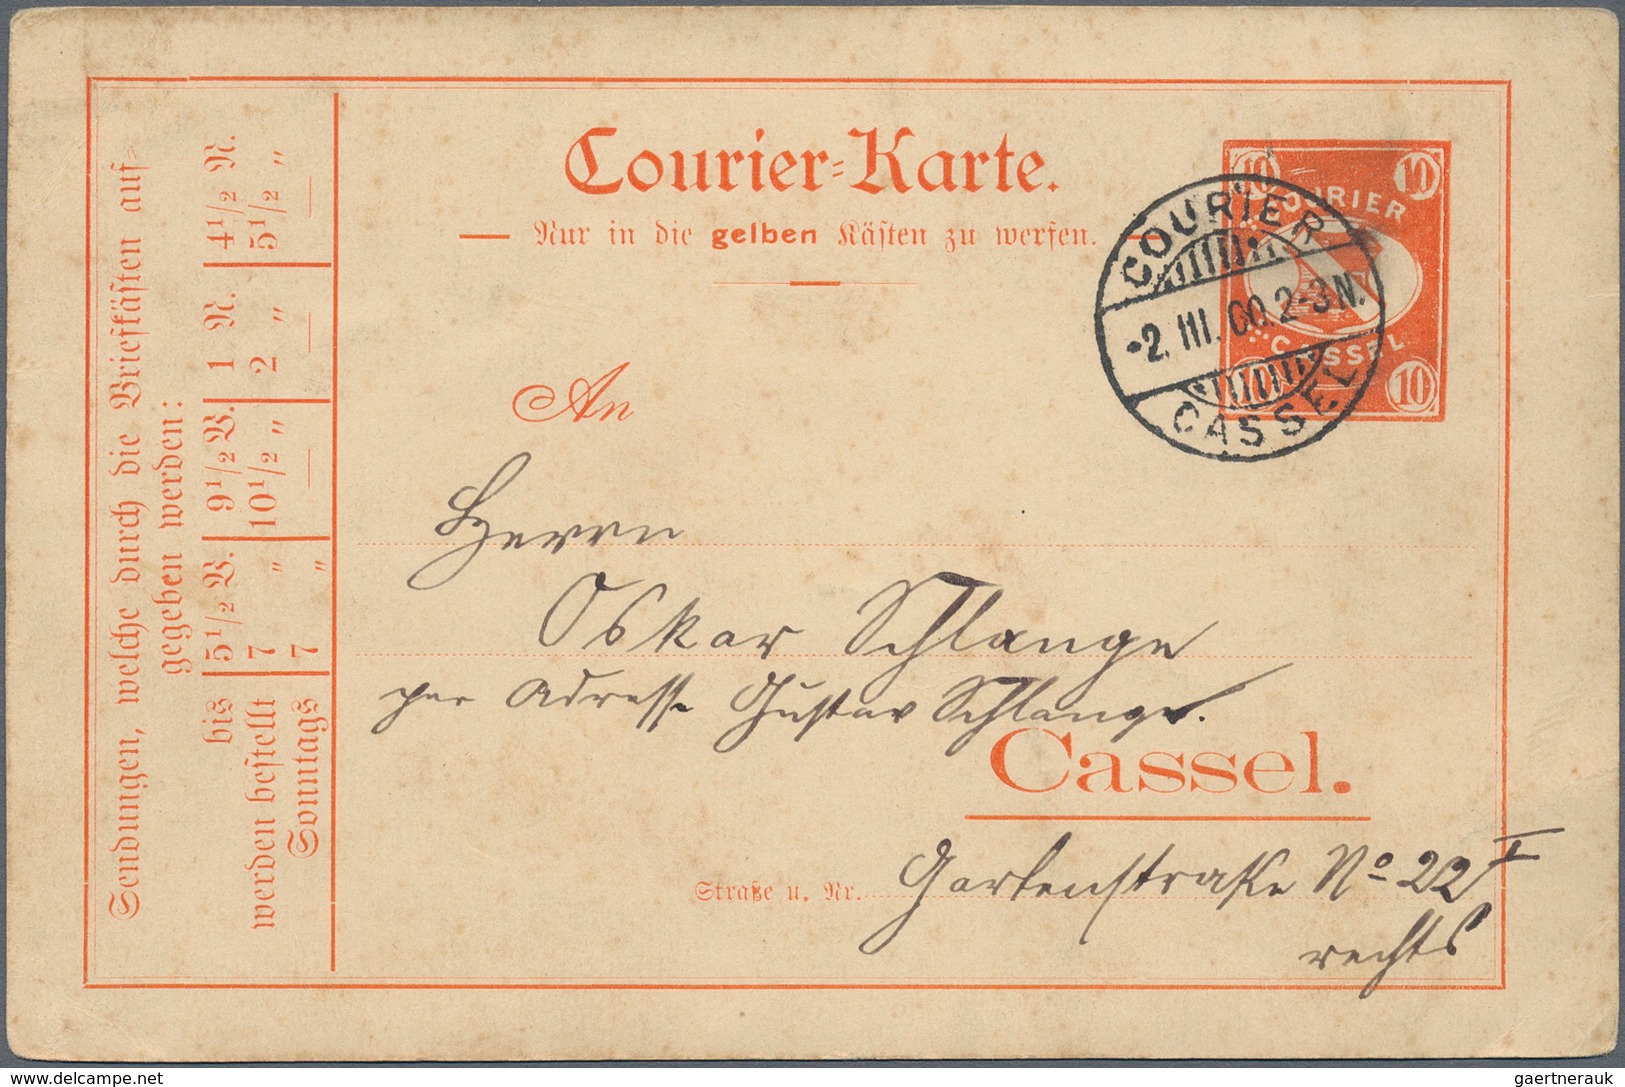 Courier-Karte.
Nur in die gelben Kästen zu werfen.
10 10
COURIER
CASSEL
10
COURIER
-2. III. 00. 2-3 N.
CASSEL
An
Herrn
Oskar Schlange
per Adresse Gustav Schlange.
Cassel.
Straße u. Nr. Gartenstraße No 22 I
rechts
Sendungen, welche durch die Briefkästen auf-
gegeben werden:
bis 5 1/2 V. 9 1/2 V. 1 N. 4 1/2 N.
werden bestellt 7 " 10 1/2 " 2 " 5 1/2 "
Sonntags 7 " — — —
www.delcampe.net
gaertnerauk